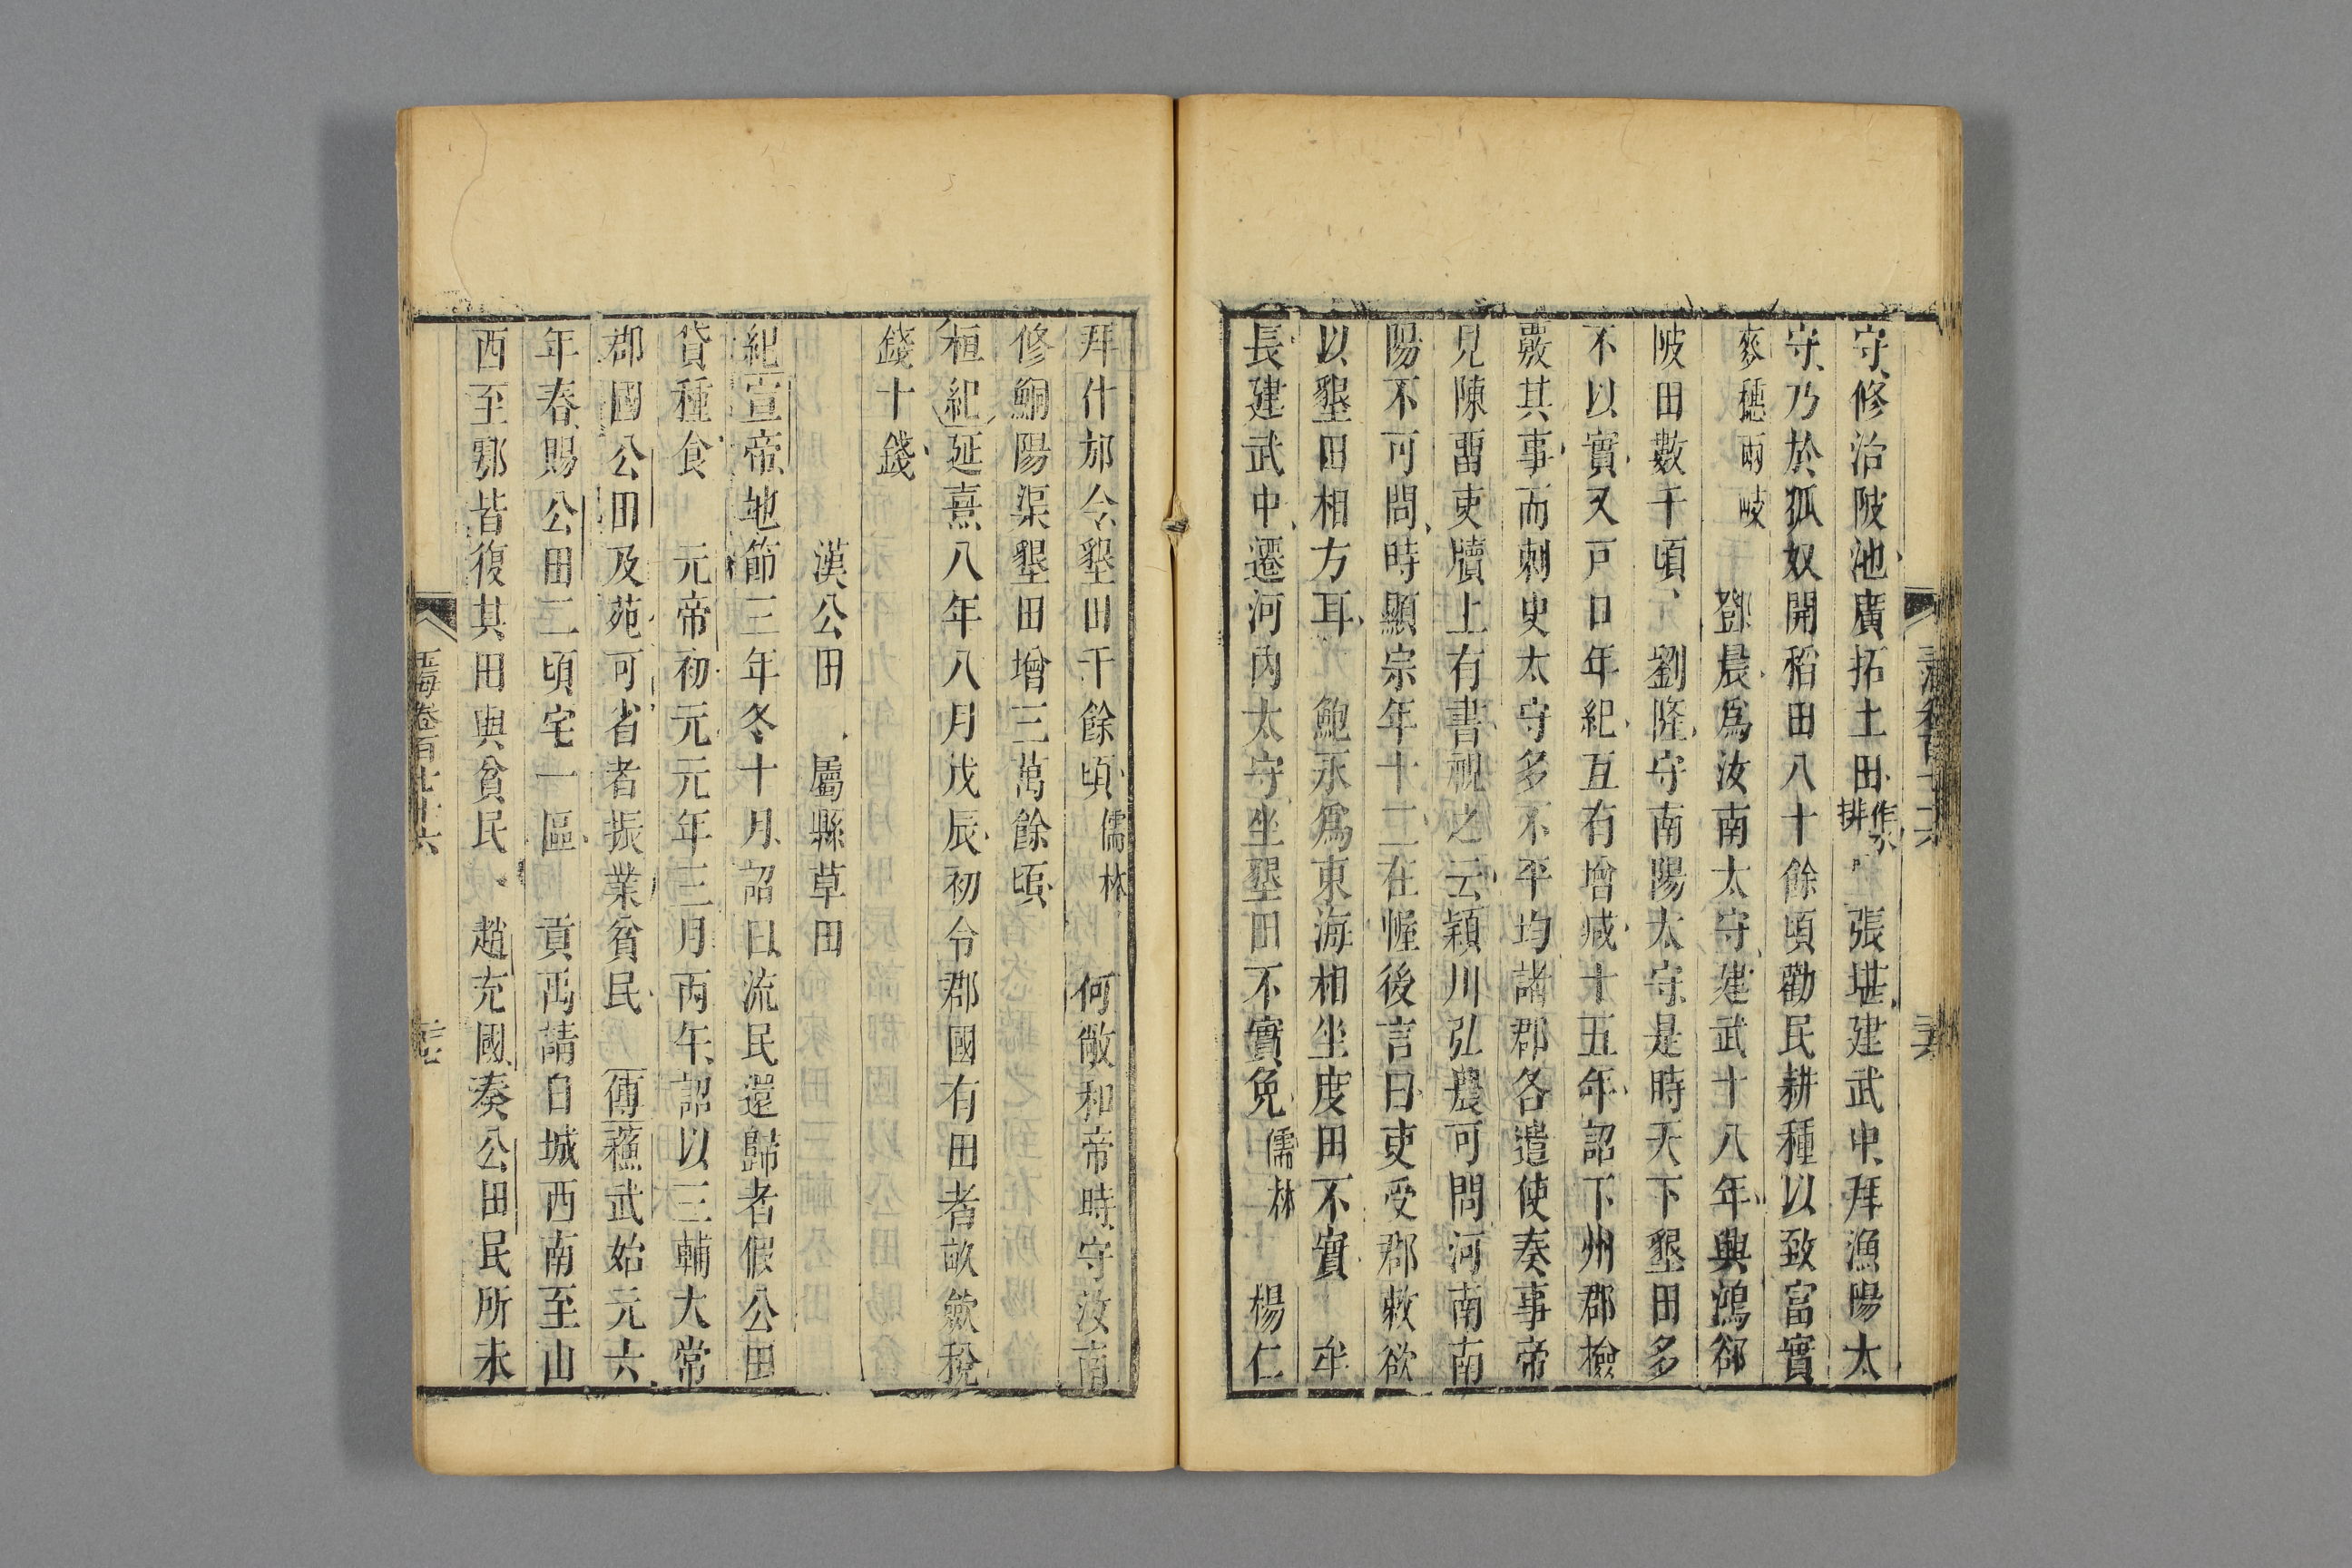 守修治陂池廣拓土田作水排張堪建武中拜漁陽太
守乃於狐奴開稻田八十餘頃勸民耕種以致富實
麥穗兩岐鄧晨爲汝南太守建武十八年興鴻郤
陂田數千頃劉隆守南陽太守是時天下墾田多
不以實又戸口年紀互有增減十五年詔下州郡檢
覈其事而刺史太守多不平均諸郡各遣使奏事帝
見陳畱吏牘上有書視之云潁川弘農可問河南南
陽不可問時顯宗年十二在幄後言曰吏受郡敕欲
以墾田相方耳鮑永爲東海相坐度田不實牟
長建武中遷河內太守坐墾田不實免儒林楊仁
拜什邡令墾田千餘頃儒林何敞和帝時守汝南
修鮦陽渠墾田增三萬餘頃
桓紀延熹八年八月戊辰初令郡國有田者畝斂稅
錢十錢
漢公田屬縣草田
紀宣帝地節三年冬十月詔曰流民還歸者假公田
貸種食元帝初元元年三月丙午詔以三輔大常
郡國公田及苑可省者振業貧民傳蘇武始元六
年春賜公田二頃宅一區貢禹請自城西南至山
西至鄠皆復其田與貧民趙充國奏公田民所未
玉海卷百七十六